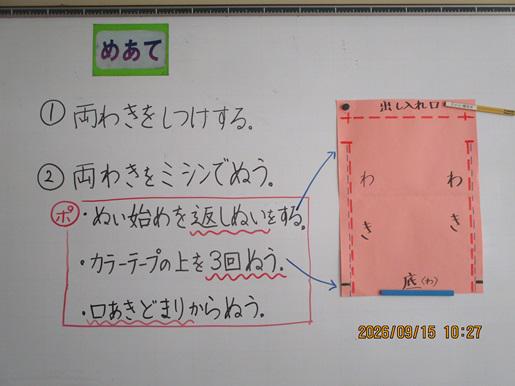 めあて
① 両わきをしつけする。
② 両わきをミシンでぬう。
ポ ・ぬい始めを返しぬいをする。
・カラーテープの上を3回ぬう。
・口あきどまりからぬう。
出し入れ口
わき わき
底(わ)
2026/09/15 10:27